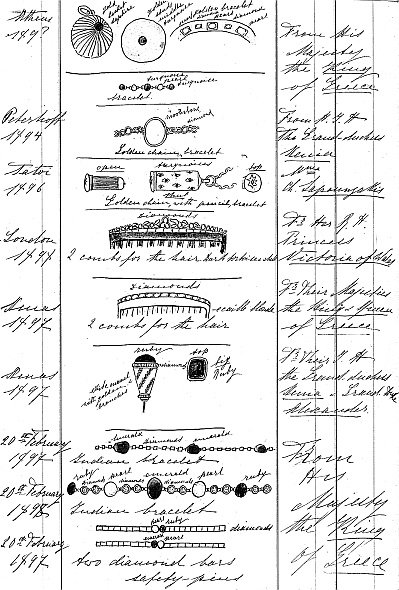 Athens
189?
golden
golden
golden bracelet
diamond
pearl
From His
Majesty
the King
of Greece
turquoise
pearls
turquoise
bracelet.
Peterhoff
1894
moonstone
diamond
Golden chain, bracelet
From H. I. H
the Grand duchess
Xenia
Tatoi
1896
open
turquoises
top
shut
Golden chain, with pencil, bracelet
Mme
London
1897
diamonds
2 combs for the hair. dark tortoiseshell
Her R. H.
Princess
Victoria of Wales
Xmas
1897
Diamonds
écaille blonde
2 combs for the hair
Their Majesties
the King & Queen
of Greece
Xmas
1897
ruby
top
diamonds
big
ruby
white enamel
with golden
branches
Their I. H
the Grand duchess
Xenia & Grand Duke
Alexander.
20th February
1897
emerald
diamonds
emerald
Indian bracelet
From
His
Majesty
the King
of Greece
20th February
1898
ruby
diamond
pearl
diamonds
emerald
diamonds
pearl
ruby
Indian bracelet
20th February
1897
pearl
ruby
diamonds
pearl
two diamond bars
safety-pins